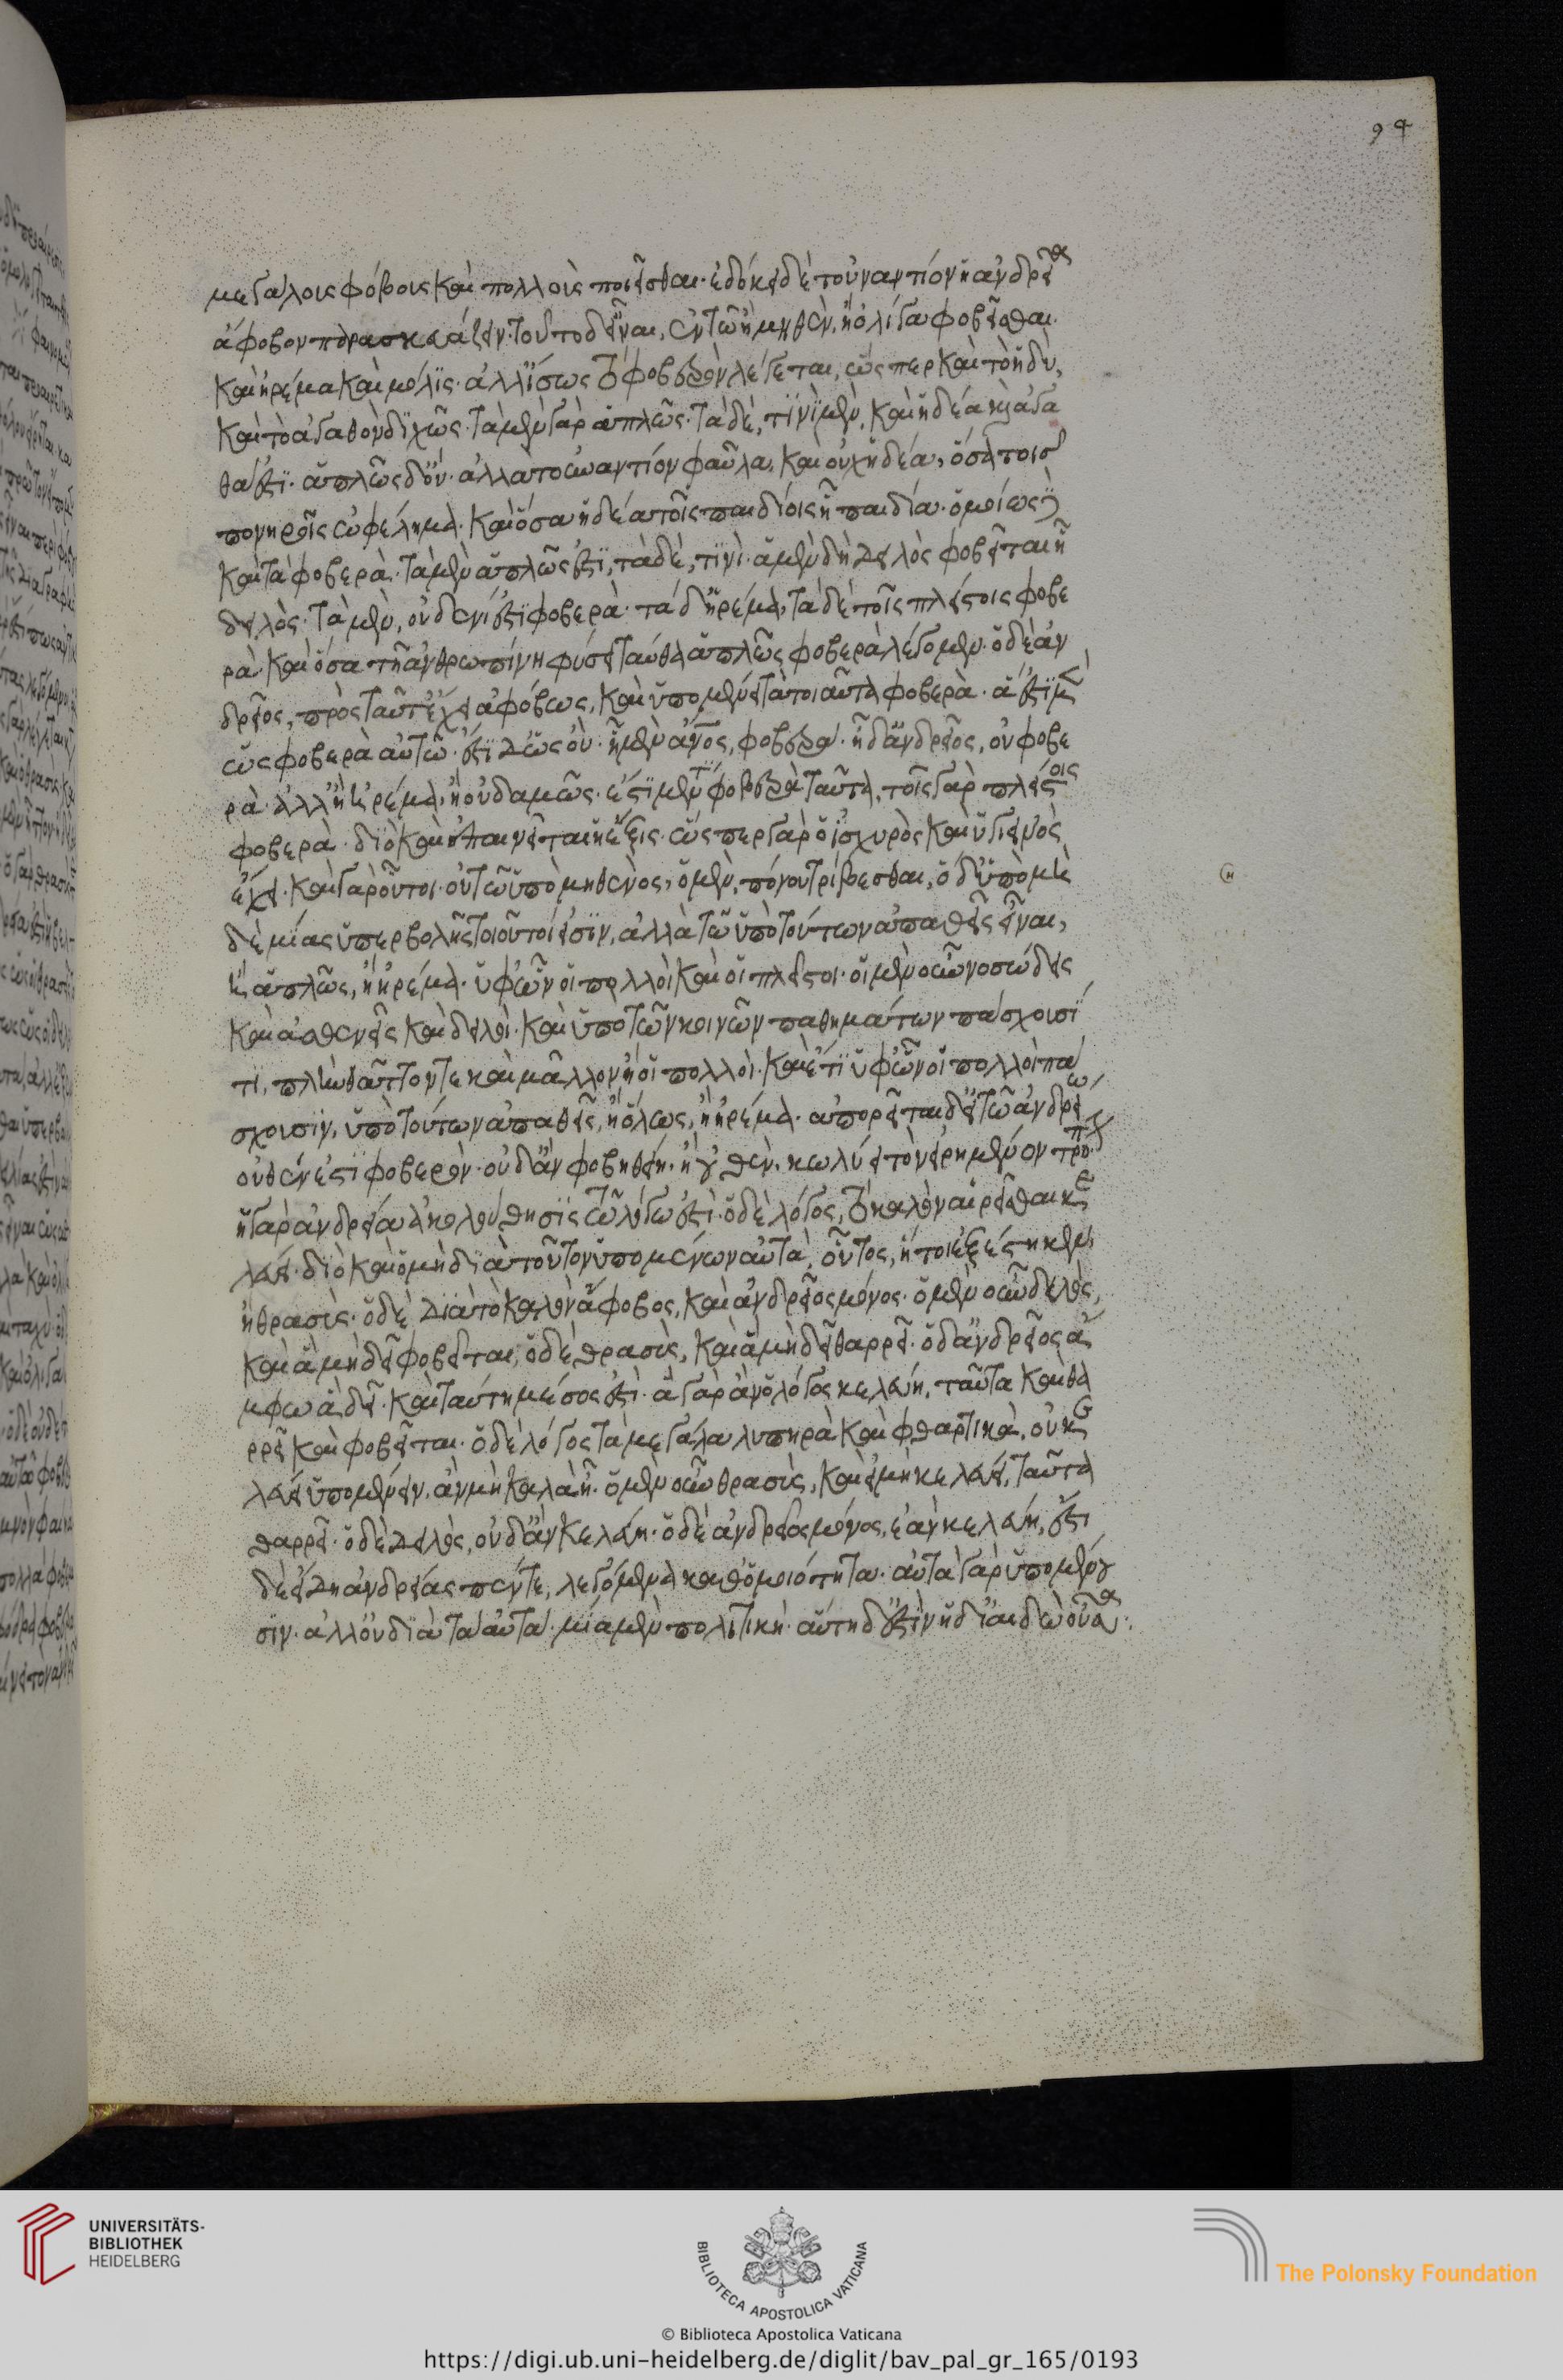 94
μεγάλοις φόβοις καὶ πολλοῖς ποιεῖσθαι· ἐδόκει δὲ τοὐναντίον ἡ ἀνδρεία
ἄφοβον παρασκευάζειν· τοῦτο δ' εἶναι, ἐν τῶ ἢ μηθὲν, ἢ ὀλίγα φοβεῖσθαι·
καὶ ἠρέμα καὶ μόλις· ἀλλ' ἴσως τὸ φοβερὸν λέγεται, ὥσπερ καὶ τὸ ἡδὺ,
καὶ τὸ ἀγαθὸν διχῶς· τὰ μὲν γὰρ ἁπλῶς· τὰ δὲ, τινὶ μὲν, καὶ ἡδέα καὶ ἀγα
θά ἐστι· ἁπλῶς δ' οὔ· ἀλλὰ τοὐναντίον φαῦλα, καὶ οὐχ ἡδέα, ὅσα τοῖς
πονηροῖς ὠφέλημα· καὶ ὅσα ἡδέα τοῖς παιδίοις ἧ παιδία· ὁμοίως δὲ
καὶ τὰ φοβερὰ· τὰ μὲν ἁπλῶς ἐστι, τὰ δὲ, τινὶ· ἃ μὲν δὴ δειλὸς φοβεῖται ἧ
δειλὸς· τὰ μὲν, οὐδενί ἐστι φοβερὰ· τὰ δ' ἠρέμα, τὰ δὲ τοῖς πλείστοις φοβε
ρὰ· καὶ ὅσα τῆ ἀνθρωπίνη φύσει ταῦθα ἁπλῶς φοβερὰ λέγομεν· ὁ δὲ ἀν
δρεῖος, πρὸς ταῦτ' ἔχει ἀφόβως, καὶ ὑπομένει τὰ τοιαῦτα φοβερὰ· ἅ ἐστι μὲν
ὡς φοβερὰ αὐτῶ· ἔστι δ' ὡς οὔ· ἧ μὲν ἄνος, φοβερά· ἧ δ' ἀνδρεῖος, οὐ φοβε
ρὰ· ἀλλ' ἢ ἠρέμα, ἢ οὐδαμῶς· ἔστι μέντοι φοβερὰ ταῦτα, τοῖς γὰρ πλείστοις
φοβερὰ· διὸ καὶ ἐπαινεῖται ἡ ἕξις· ὥσπερ γὰρ ὁ ἰσχυρὸς καὶ ὑγιεινὸς
ἔχει· καὶ γὰρ οὗτοι· οὐ τῶ ὑπὸ μηθενὸς, ὁ μὲν, πόνου τρίβεσθαι, ὁ δ' ὑπὸ μη
δὲ μίας ὑπερβολῆς τοιοῦτοί εἰσιν, ἀλλὰ τῶ ὑπὸ τούτων ἀπαθεῖς εἶναι,
ἢ ἁπλῶς, ἢ ἠρέμα· ὑφ' ὧν οἱ πολλοὶ καὶ οἱ πλεῖστοι· οἱ μὲν οὖν νοσώδεις
καὶ ἀσθενεῖς καὶ δειλοὶ· καὶ ὑπὸ τῶν κοινῶν παθημάτων πάσχουσί
τι, πλὴν θᾶττόν τε καὶ μᾶλλον ἢ οἱ πολλοὶ· καὶ ἔτι ὑφ' ὧν οἱ πολλοὶ πά
σχουσιν, ὑπὸ τούτων ἀπαθεῖς, ἢ ὅλως, ἢ ἠρέμα· ἀπορεῖται δ' εἰ τῶ ἀνδρείω
οὐθέν ἐστι φοβερὸν· οὐδ' ἂν φοβηθείη· ἢ οὐθὲν, κωλύει τὸν εἰρημένον τρόπον·
ἡ γὰρ ἀνδρεία ἀκολούθησις τῶ λόγω ἐστὶ· ὁ δὲ λόγος, τὸ καλὸν αἱρεῖσθαι κε
λεύει· διὸ καὶ ὁ μὴ διὰ τοῦτον ὑπομένων αὐτὰ, οὗτος, ἤτοι ἐξέστηκεν,
ἢ θρασὺς· ὁ δὲ διὰ τὸ καλὸν ἄφοβος, καὶ ἀνδρεῖος μόνος· ὁ μὲν οὖν δειλὸς,
καὶ ἃ μὴ δεῖ φοβεῖται, ὁ δὲ θρασὺς, καὶ ἃ μὴ δεῖ θαρρεῖ· ὁ δ' ἀνδρεῖος ἄ
μφω ἃ δεῖ· καὶ ταύτη μέσος ἐστὶ· ἃ γὰρ ἂν ὁ λόγος κελεύη, ταῦτα καὶ θα
ρρεῖ καὶ φοβεῖται· ὁ δὲ λόγος τὰ μεγάλα λυπηρὰ καὶ φθαρτικὰ, οὐ κε
λεύει ὑπομένειν, ἂν μὴ καλὰ ἦ· ὁ μὲν οὖν θρασὺς, καὶ εἰ μὴ κελεύει, ταῦτα
θαρρεῖ· ὁ δὲ δειλὸς, οὐδ' ἂν κελεύη· ὁ δὲ ἀνδρεῖος μόνος, ἐὰν κελεύη, ἔστι
δὲ εἴδη ἀνδρείας πέντε, λεγόμενα καθ' ὁμοιότητα· αὐτὰ γὰρ ὑπομένου
σιν· ἀλλ' οὐ διὰ τὰ αὐτὰ· μία μὲν πολιτικὴ· αὕτη δ' ἐστὶν ἡ δι' αἰδῶ οὖσα·
UNIVERSITÄTS-
BIBLIOTHEK
HEIDELBERG
BIBLIOTECA APOSTOLICA VATICANA
© Biblioteca Apostolica Vaticana
The Polonsky Foundation
https://digi.ub.uni-heidelberg.de/diglit/bav_pal_gr_165/0193